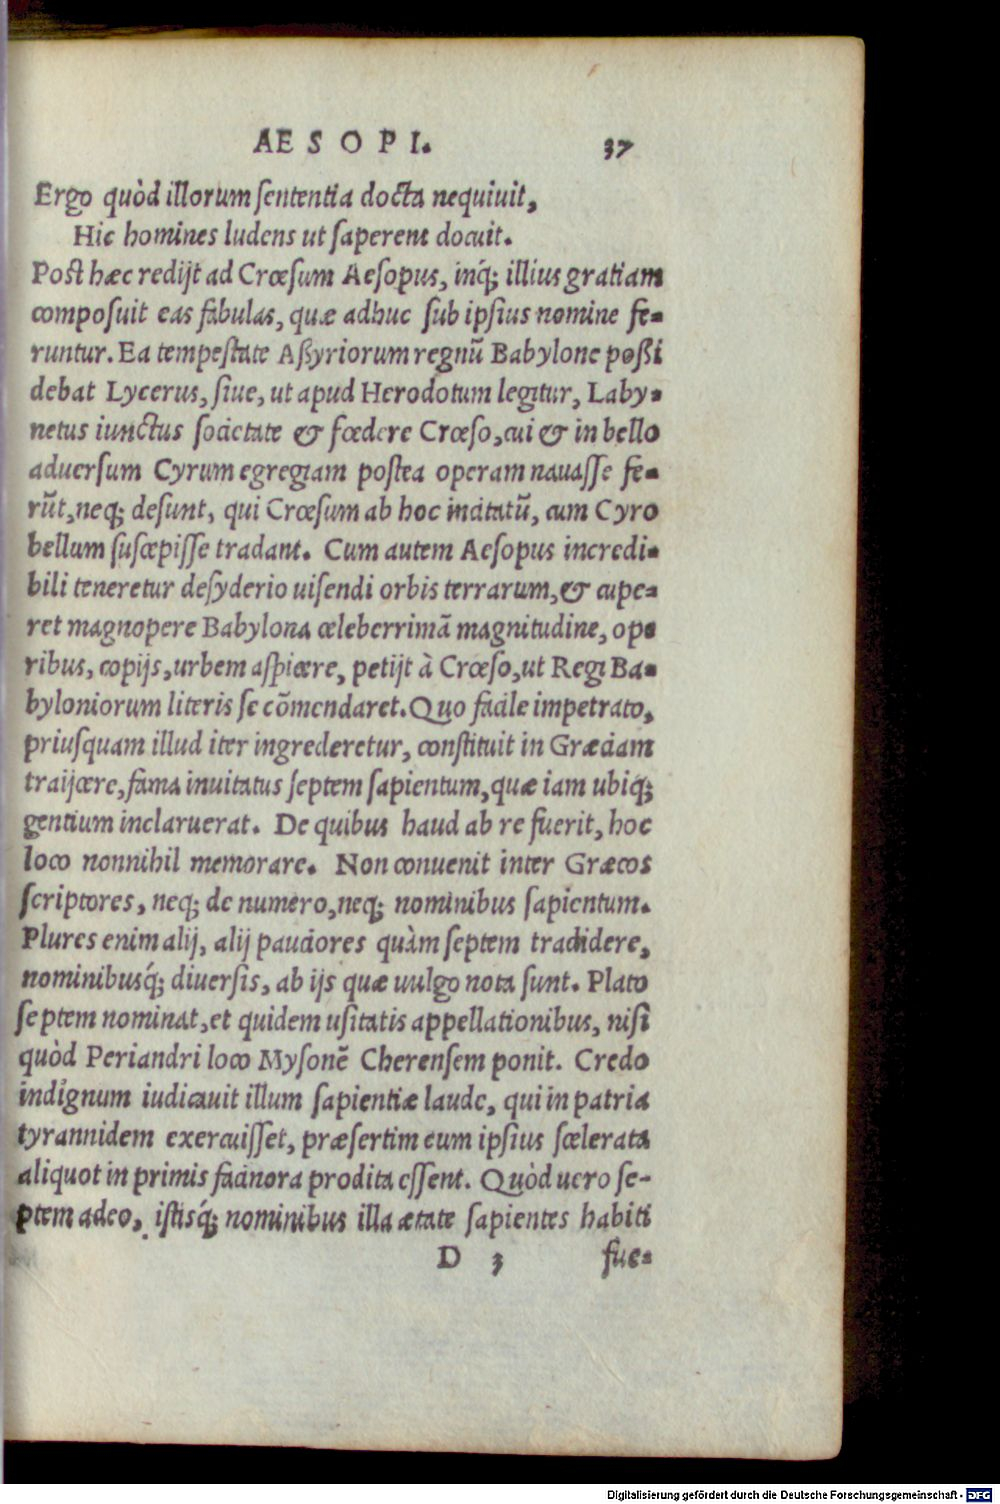 AESOPI. 37
Ergo quòd illorum ſententia docta nequiuit,
Hic homines ludens ut ſaperent docuit.
Poſt hæc redijt ad Crœſum Aeſopus, inq́; illius gratiam
compoſuit eas fabulas, quæ adhuc ſub ipſius nomine fe-
runtur. Ea tempeſtate Aßyriorum regnũ Babylone poßi
debat Lycerus, ſiue, ut apud Herodotum legitur, Laby-
netus iunctus ſocietate & fœdere Crœſo, cui & in bello
aduerſum Cyrum egregiam poſtea operam nauaſſe fe-
rũt, neq; deſunt, qui Crœſum ab hoc incitatũ, cum Cyro
bellum ſuſcepiſſe tradant. Cum autem Aeſopus incredi-
bili teneretur deſyderio uiſendi orbis terrarum, & cupe-
ret magnopere Babylona celeberrimã magnitudine, ope
ribus, copijs, urbem aſpicere, petijt à Crœſo, ut Regi Ba-
byloniorum literis ſe cõmendaret. Quo facile impetrato,
priuſquam illud iter ingrederetur, conſtituit in Græciam
traijcere, fama inuitatus ſeptem ſapientum, quæ iam ubiq́;
gentium inclaruerat. De quibus haud ab re fuerit, hoc
loco nonnihil memorare. Non conuenit inter Græcos
ſcriptores, neq; de numero, neq; nominibus ſapientum.
Plures enim alij, alij pauciores quàm ſeptem tradidere,
nominibusq́; diuerſis, ab ijs quæ uulgo nota ſunt. Plato
ſeptem nominat, et quidem uſitatis appellationibus, niſi
quòd Periandri loco Myſonẽ Cherenſem ponit. Credo
indignum iudicauit illum ſapientiæ laude, qui in patria
tyrannidem exercuiſſet, præſertim cum ipſius ſcelerata
aliquot in primis facinora prodita eſſent. Quòd uero ſe-
ptem adeo, iſtisq́; nominibus illa ætate ſapientes habiti
D 3 fue-
Digitalisierung gefördert durch die Deutsche Forschungsgemeinschaft - DFG